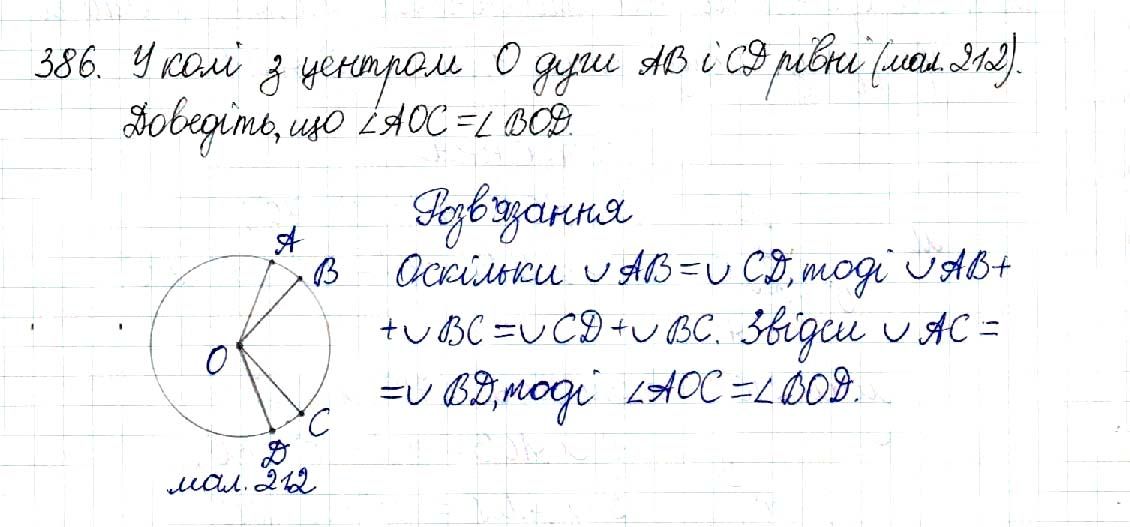 386. У колі з центром О дуги АВ і СD рівні (мал. 212).
Доведіть, що ∠AOC = ∠BOD.
Розв'язання
A
B
Оскільки ∪ AB = ∪ CD, тоді ∪ AB +
+ ∪ BC = ∪ CD + ∪ BC. Звідси ∪ AC =
O
= ∪ BD, тоді ∠AOC = ∠BOD.
C
D
мал. 212